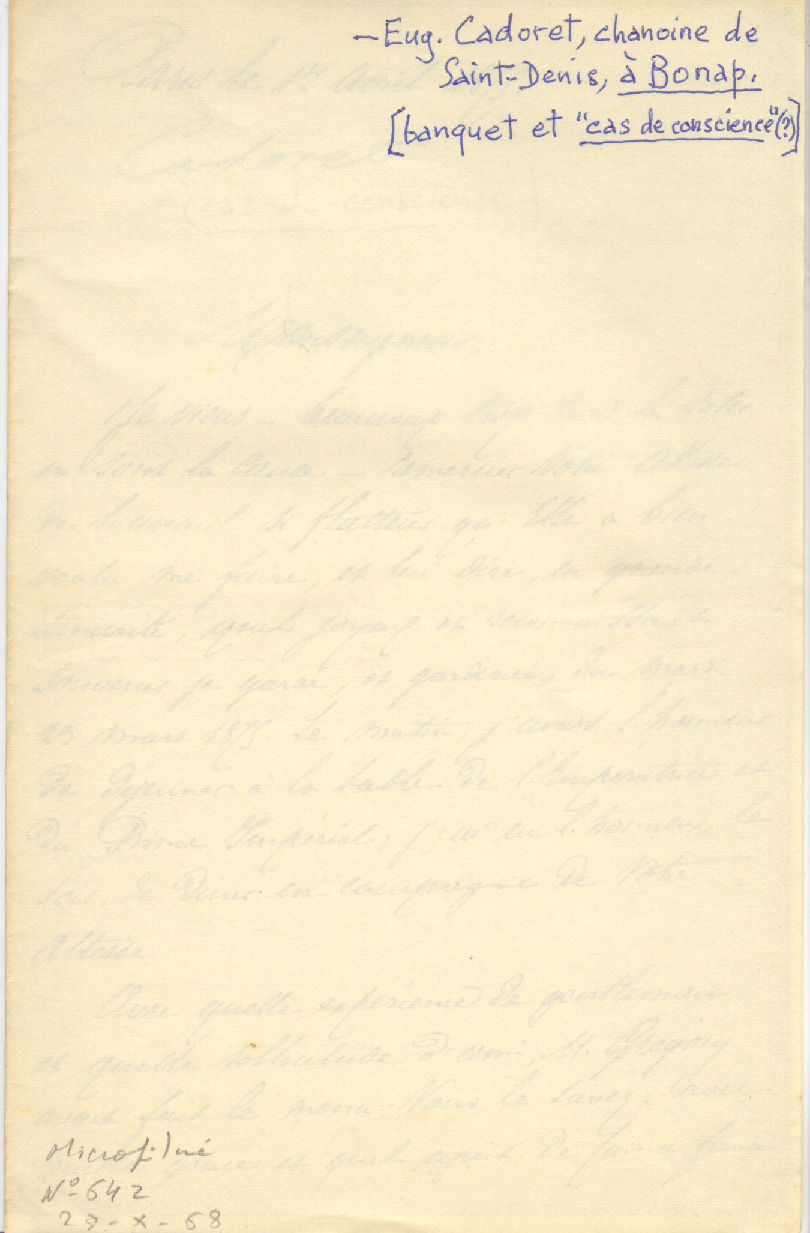 — Eug. Cadoret, chanoine de
Saint-Denis, à Bonap.
[banquet et "cas de conscience"(?)]
Paris le 1er avril
Cadoret
(cas de conscience)
Monseigneur
Je viens – beaucoup trop
en sont la cause – remercier Votre Altesse
de l'accueil si flatteur qu'Elle a bien
voulu me faire, et lui dire, en
quel joyeux et reconnaissant
souvenir je garde, et garderai, du mardi
23 mars 1875. Le matin, j'avais l'honneur
de déjeuner à la table de l'Impératrice et
du Prince Impérial; j'ai eu l'honneur, le
soir, de dîner en compagnie de Votre
Altesse.
Avec quelle expérience de gentleman
et quelle sollicitude d'ami, M. Gregory
avait fait le menu, Vous le savez;
grâce et quel esprit de
Microfilmé
Nº 642
23-X-68